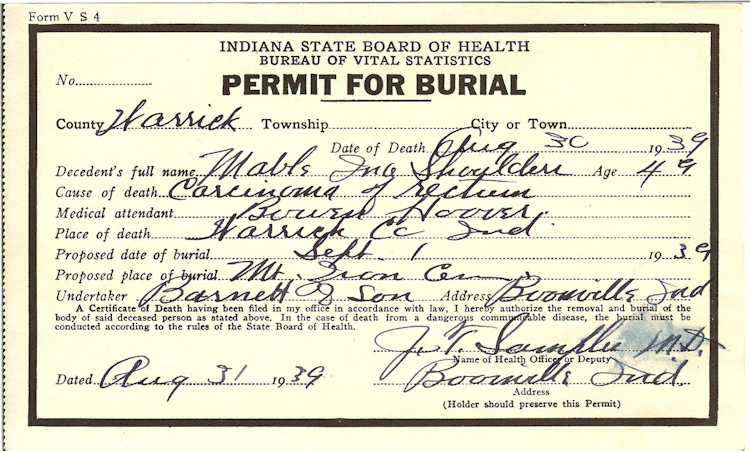 Form V S 4
INDIANA STATE BOARD OF HEALTH
BUREAU OF VITAL STATISTICS
No.
PERMIT FOR BURIAL
County Warrick Township City or Town
Date of Death Aug 30 1939
Decedent's full name Mable Ina Shoulders Age 49
Cause of death Carcinoma of rectum
Medical attendant Bowen Hoover
Place of death Warrick Co Ind
Proposed date of burial Sept. 1 1939
Proposed place of burial Mt. Zion Cem
Undertaker Barnett & Son Address Boonville Ind
A Certificate of Death having been filed in my office in accordance with law, I hereby authorize the removal and burial of the
body of said deceased person as stated above. In the case of death from a dangerous communicable disease, the burial must be
conducted according to the rules of the State Board of Health.
J. T. Samples M.D.
Name of Health Officer or Deputy
Dated Aug 31 1939 Boonville Ind
Address
(Holder should preserve this Permit)